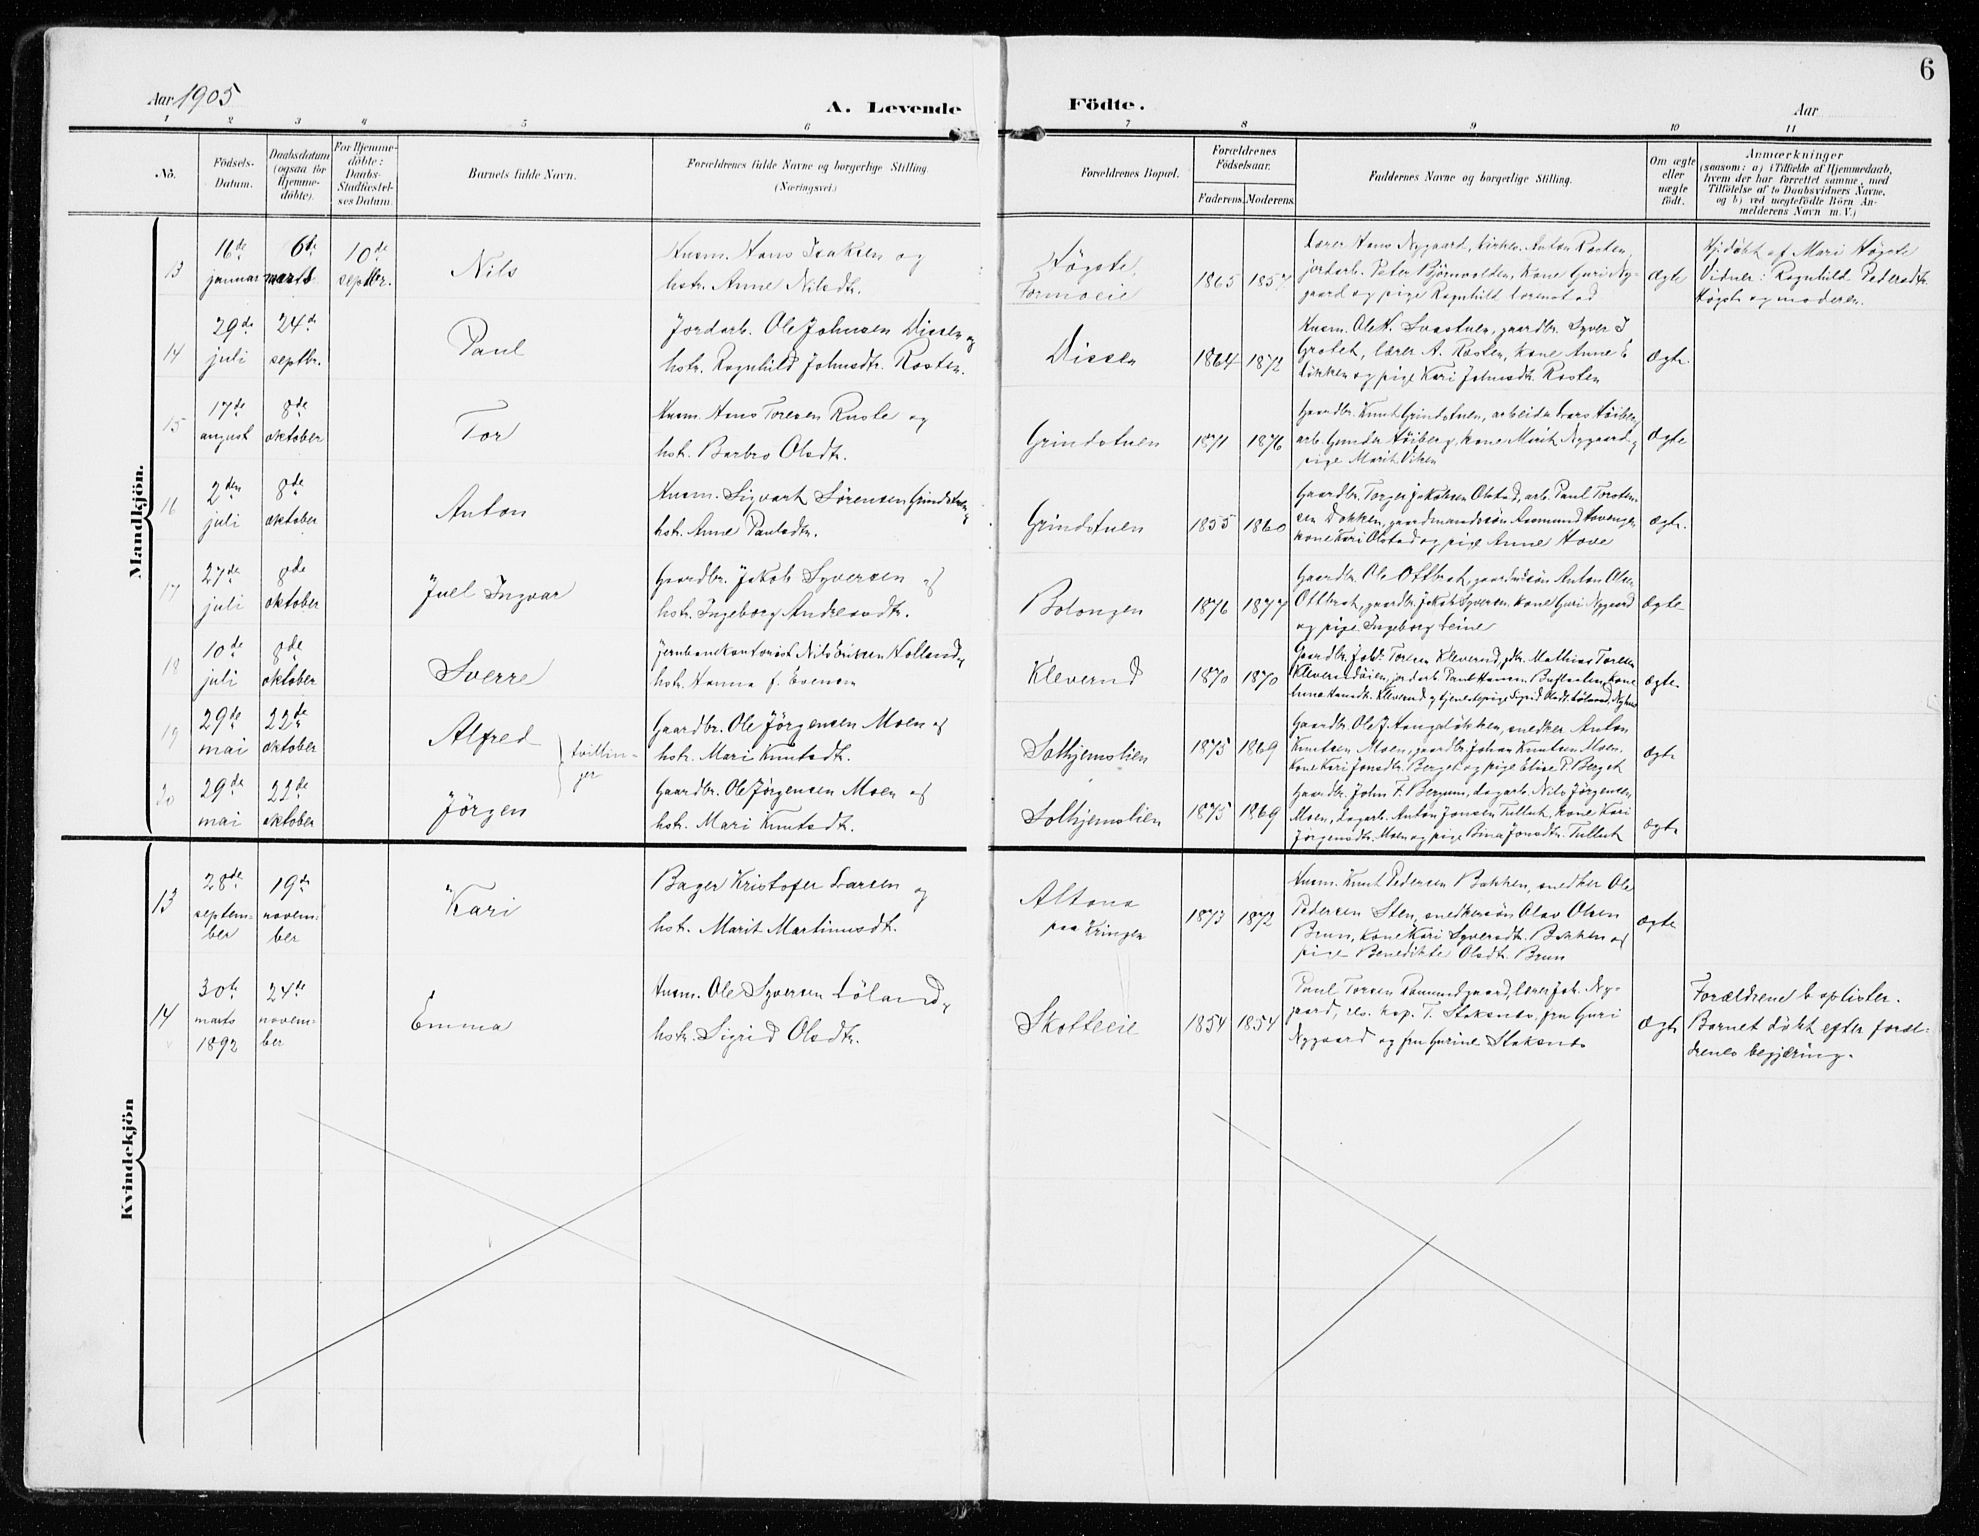 6
Aar 1905
A. Levende
Födte.
Aar
1 2 3 4 5 6 7 8 9 10 11
No.
Födsels-
Datum.
Daabsdatum
(ogsaa for
Hjemme-
döbte).
For Hjemme-
döbte:
Daabs-
Stadfæstel-
ses Datum.
Barnets fulde Navn.
Forældrenes fulde Navne og borgerlige Stilling.
(Næringsvei.)
Forældrenes Bopæl.
Forældrenes
Födselsaar.
Faderens. Moderens.
Faddernes Navne og borgerlige Stilling.
Om ægte
eller
uægte
födt.
Anmærkninger
(saasom: a) i Tilfælde af Hjemmedaab,
hvem der har forrettet samme, med
Tilföielse af to Daabsvidners Navne,
og b) ved uægtefödte Börn An-
melderens Navn m. V.)
Mandkjön.
13
16de
januar
6te
marts
10de
septbr.
Nils
Husm. Hans Isaksen og
hstr. Anne Nilsdtr.
Høgste,
Formoeie
1865 1857
Lærer Hans Nygaard, kirkes. Anton Rosten,
jordarb. Peter Bjørnvolden, kone Guri Ny-
gaard og pige Ragnhild
ægte
Hjdøbt af Mari Høgste
Vidner: Ragnhild Pedersdtr.
Høgste og moderen.
14
29de
juli
24de
septbr.
Paul
Jordarb. Ole Johnsen Dissen og
hstr. Ragnhild Johnsdtr. Rosten.
Dissen
1864 1872
Husm. Ole H. Svastuen, gaardbr. Syver I.
Grotet, lærer A. Rosten, kone Anne E.
Løkken og pige Kari Johnsdtr. Rosten
ægte
15
17de
august
8de
oktober
Tor
Husm. Hans Toresen Rusle og
hstr. Barbro Olsdtr.
Grindstuen
1871 1876
Gaardbr. Knut Grindstuen, arbeider Lars Høiberg,
arb. Gunder Høiberg, kone Marit Nygaard og
pige Marit Viken
ægte
16
2den
juli
8de
oktober
Anton
Husm. Sigvart Sørensen Grindstuen og
hstr. Anne Paulsdtr.
Grindstuen
1855 1860
Gaardbr. Torger Jakobsen Olstad, arb. Paul Torsten-
sen Dokken, gaardmandssøn Aasmund
kone Kari Olstad og pige Anne Hove
ægte.
17
27de
juli
8de
oktober
Juel Ingvar
Gaardbr. Jakob Syversen og
hstr. Ingeborg Andreasdtr.
Bolongen
1876 1877
Gaardbr. Ole Ottbrot, gaardmdssøn Anton Olsen
Ottbrot, gaardbr. Jakob Syversen, kone Guri Nygaard
og pige Ingeborg Leine
ægte
18
10de
juli
8de
oktober
Sverre
Jernbanekontorist Nils Eriksen Holland og
hstr. Hanna f. Evensen
Kleverud
1870 1870
Gaardbr. Joh. Toresen Kleverud, gbr. Mathias Toresen
Kleverudøien, jordarb. Paul Hansen kone
Kleverud og tjenestepige Sigrid
ægte
19
29de
mai
22de
oktober
Alfred
tvillin-
ger
Gaardbr. Ole Jørgensen Moen og
hstr. Mari Knutsdtr.
Solhjemslien
1875 1869
Gaardbr. Ole J. Haugsløkken, snedker Anton
Knutsen Moen, gaardbr. Johan Knutsen Moen,
Kone Kari Jonsdtr. Berget og pige Elise P. Berget
ægte
20
29de
mai
22de
oktober
Jørgen
Gaardbr. Ole Jørgensen Moen og
hstr. Mari Knutsdtr.
Solhjemslien
1875 1869
Gaardbr. John F. Bergum, dagarb. Nils Jørgensen
Moen, dagarb. Anton Jonsen Tullut, kone Kari
Jørgensdtr. Moen og pige Bina Jonsdtr. Tullut
ægte
Kvindekjön
13
28de
septem-
ber
19de
novem-
ber
Kari
Bager Kristofer Larsen og
hstr. Marit Martinusdtr.
Altona
paa Kringen
1873 1872
Husm. Knut Pedersen Bakken, snedker Ole
Pedersen Sten, snedkersøn Olav Olsen
Brun, kone Kari Syversdtr. Bakken og
pige Benedikte Olsdtr. Brun
ægte
14
30te
marts
1892
24de
novem-
ber
Emma
Husm. Ole Syversen Løland og
hstr. Sigrid Olsdtr.
Skotteeie
1854 1854
Paul Torsen Romundgaard, lærer Joh. Ny-
gaard, res. kap. T. Staksnæs, fru Guri
Nygaard og fru Gurine Staksnæs
ægte
Forældrene baptister.
Barnet døbt efter foræl-
drenes begjæring.